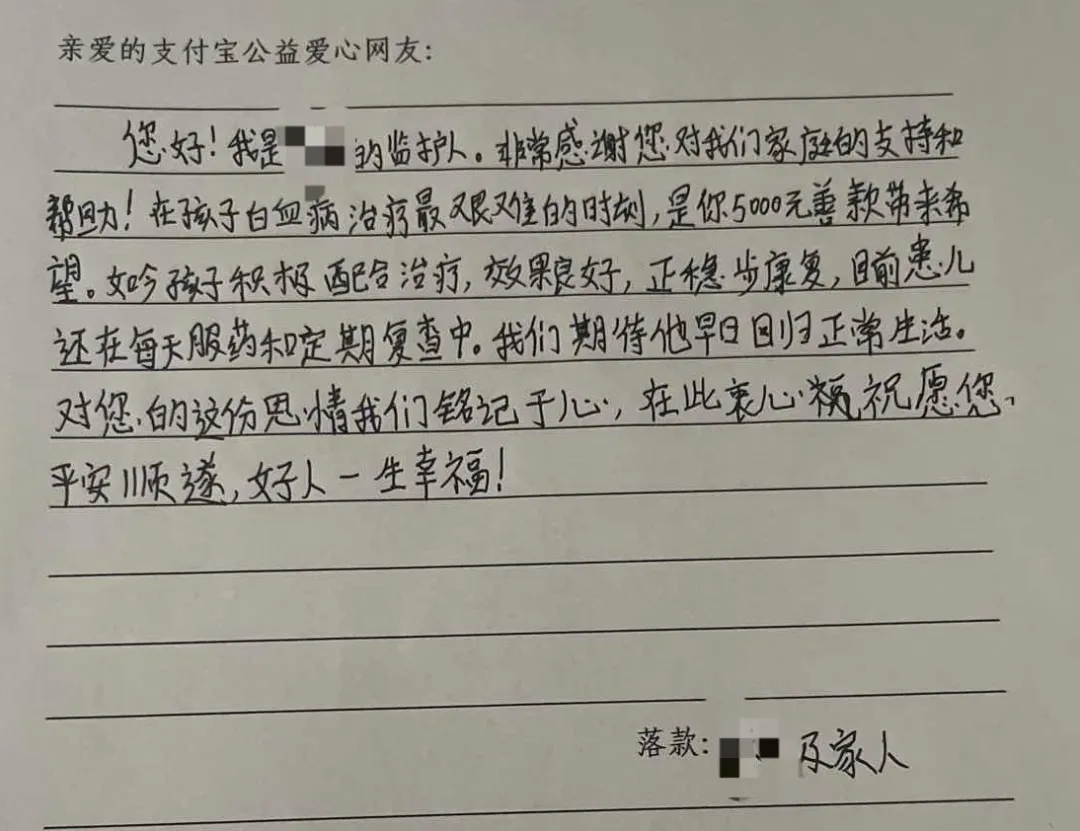 亲爱的支付宝公益爱心网友:
您好!我是的监护人。非常感谢您对我们家庭的支持和
帮助!在孩子白血病治疗最艰难的时刻,是你5000元善款带来希
望。如今孩子积极配合治疗,效果良好,正稳步康复,目前患儿
还在每天服药和定期复查中。我们期待他早日回归正常生活。
对您的这份恩情我们铭记于心,在此衷心祝愿您
平安顺遂,好人一生幸福!
落款: 及家人